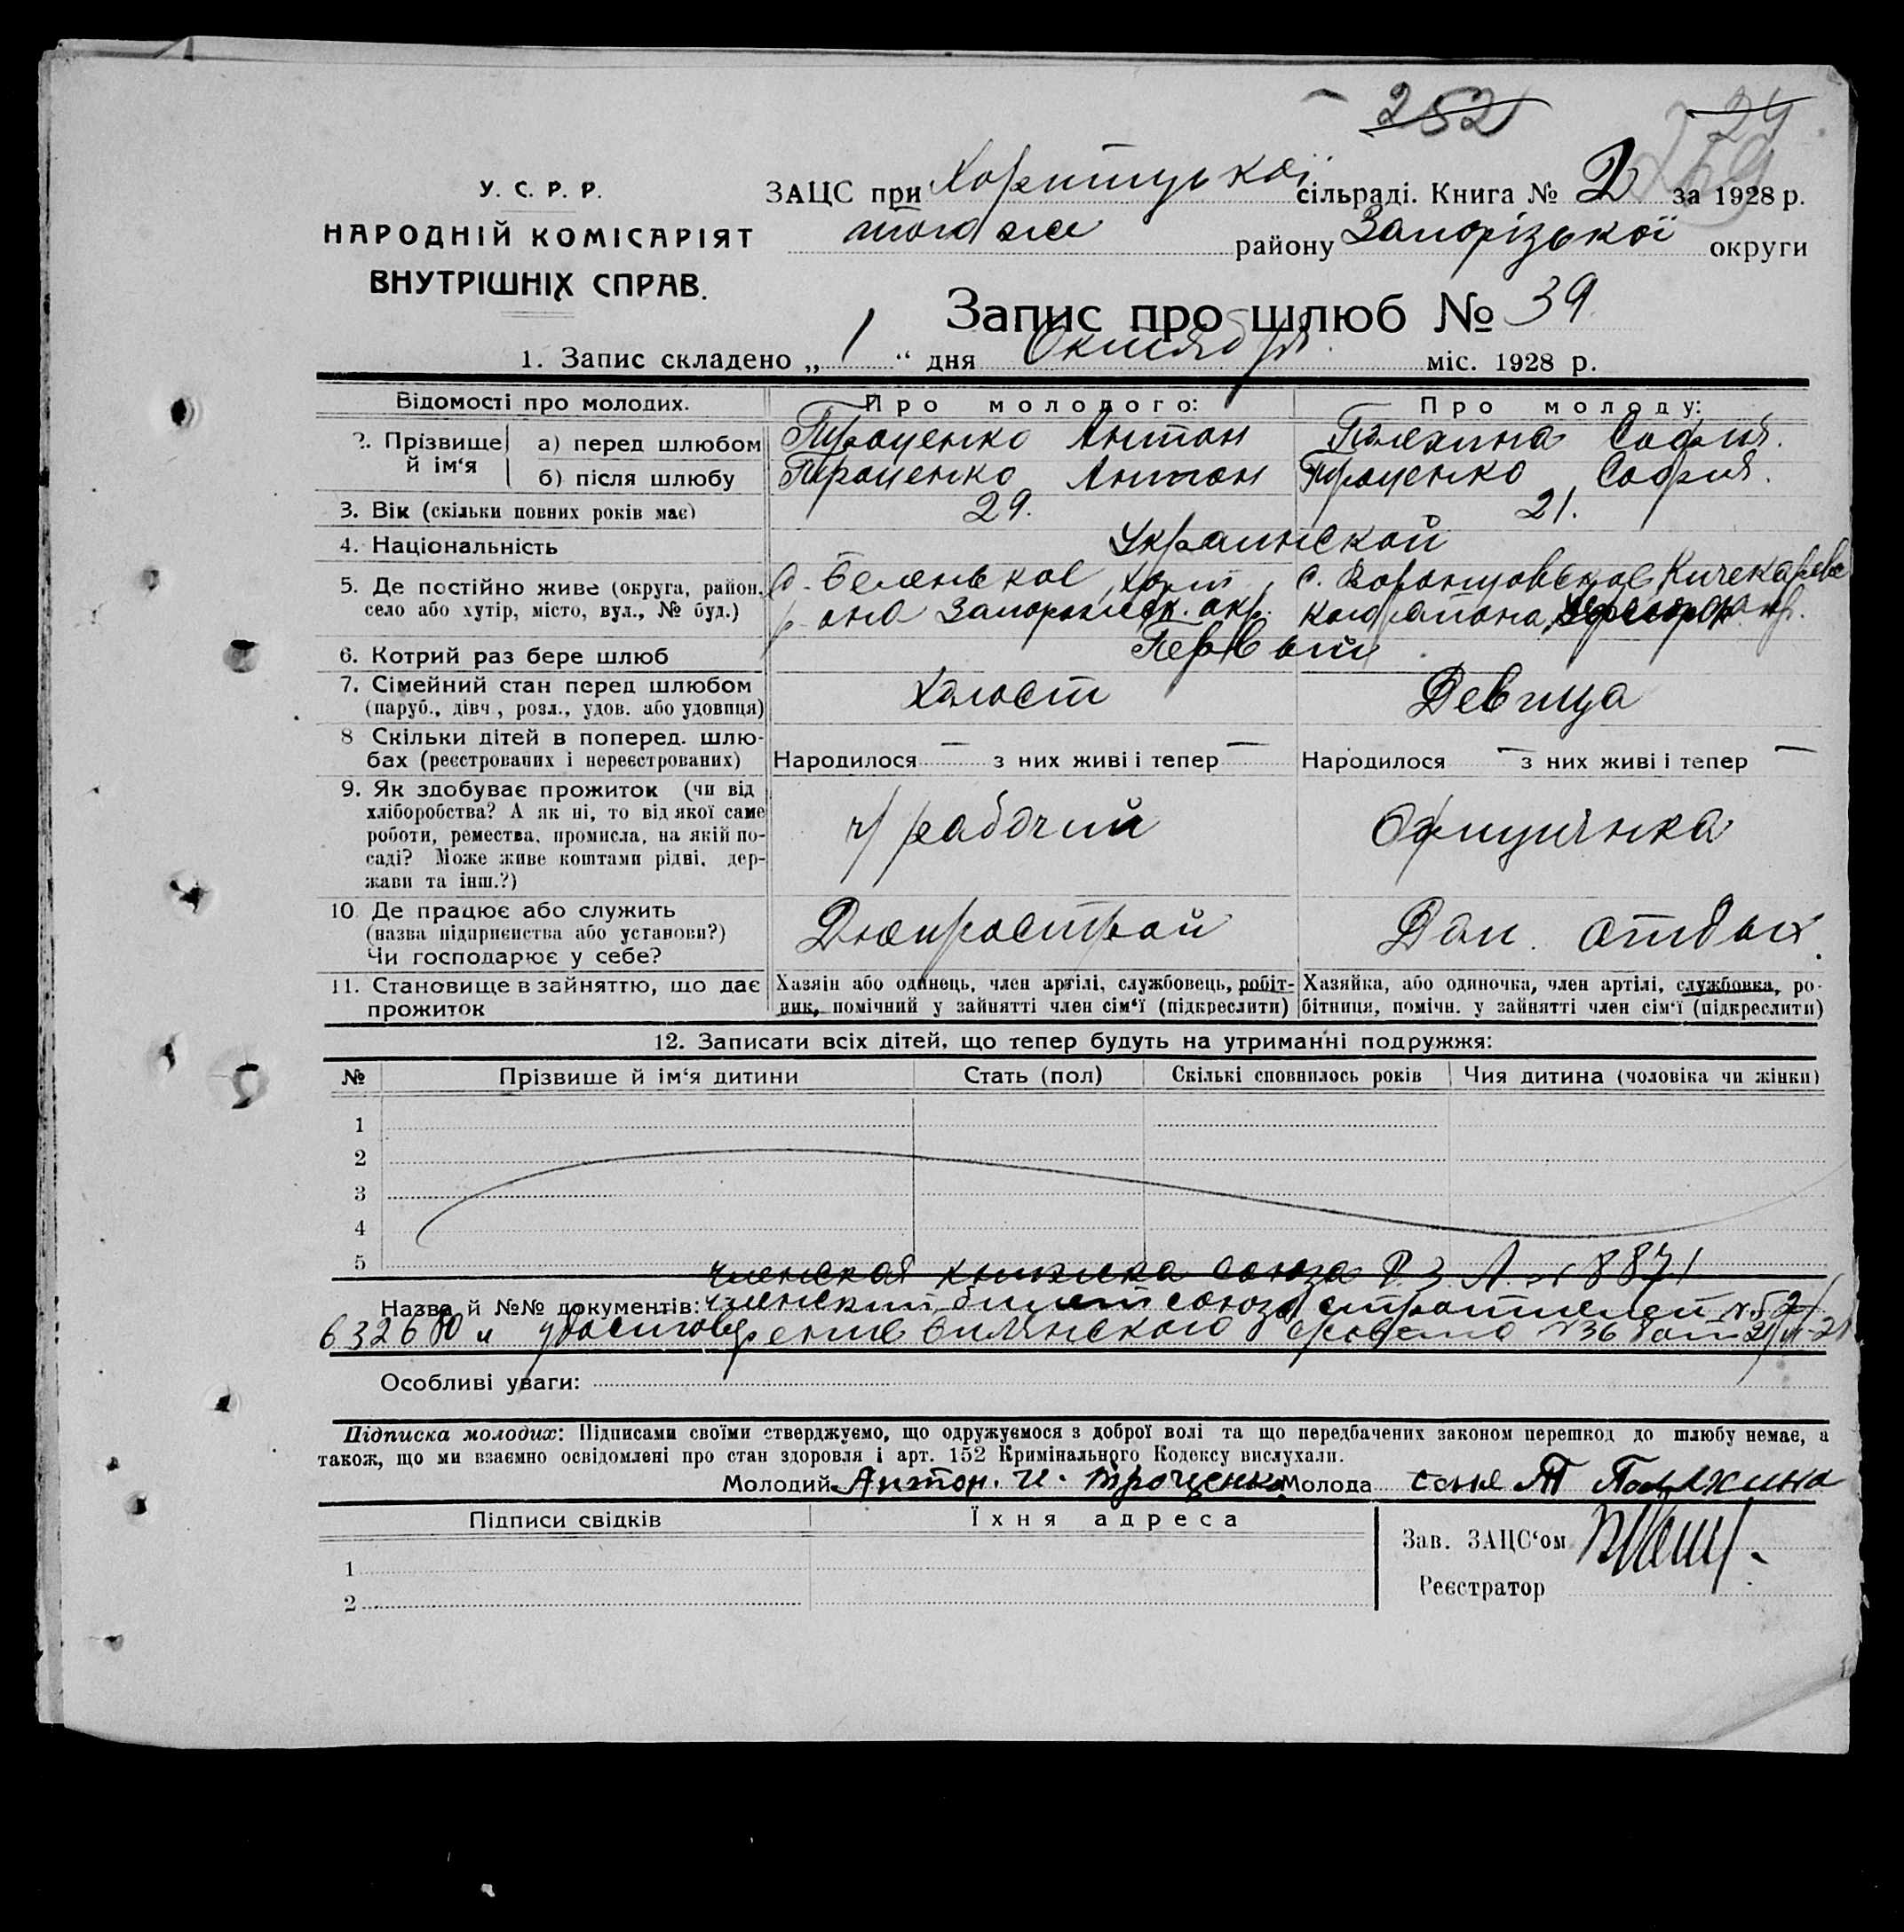 252
24
259
У. С. Р. Р.
НАРОДНІЙ КОМІСАРІЯТ
ВНУТРІШНІХ СПРАВ.
ЗАЦС при Хортицької сільраді. Книга № 2 за 1928 р.
того же району Запорізької округи
Запис про шлюб № 39
1. Запис складено „ 1 “ дня Октября міс. 1928 р.
Відомості про молодих. Про молодого: Про молоду:
2. Прізвище й ім‘я
а) перед шлюбом Троценко Антон Полехина София.
б) після шлюбу Троценко Антон Троценко София.
3. Вік (скільки повних років має) 29. 21.
4. Національність Украинской
5. Де постійно живе (округа, район, село або хутір, місто, вул., № буд.)
с. Беленькое, Хорт р-она Запорожск. окр.
с. Воронцовское Кичекасского района, окр.
6. Котрий раз бере шлюб Первый
7. Сімейний стан перед шлюбом Холост Девица
(паруб., дівч., розл., удов. або удовиця)
8 Скільки дітей в поперед. шлю-
бах (реєстрованих і нереєстрованих) Народилося — з них живі і тепер — Народилося — з них живі і тепер —
9. Як здобуває прожиток (чи від
хліборобства? А як ні, то від якої саме
роботи, ремества, промисла, на якій по-
саді? Може живе коштами рідні, дер-
жави та інш.?)
ч/рабочий Официянка
10. Де працює або служить
(назва підприємства або установи?)
Чи господарює у себе?
Днепрострой Дом. отдых.
11. Становище в зайняттю, що дає
прожиток
Хазяін або одинець, член артілі, службовець, робіт-
ник, помічний у зайнятті член сім‘ї (підкреслити)
Хазяйка, або одиночка, член артілі, службовка, ро-
бітниця, помічн. у зайнятті член сім‘ї (підкреслити)
12. Записати всіх дітей, що тепер будуть на утриманні подружжя:
№ Прізвище й ім‘я дитини Стать (пол) Скількі сповнилось років Чия дитина (чоловіка чи жінки)
1
2
3
4
5
членская книжка союза Р. З. Л. № 8871
Назва й №№ документів: членский билет союза строителей №
632680 и удостоверение
Особливі уваги:
Підписка молодих: Підписами своїми стверджуємо, що одружуємося з доброї волі та що передбачених законом перешкод до шлюбу немає, а
також, що ми взаємно освідомлені про стан здоровля і арт. 152 Кримінального Кодексу вислухали.
Молодий Антон. И. Троценко Молода Соня Т Полехина
Підписи свідків Їхня адреса
1
2
Зав. ЗАЦС‘ом
Реєстратор